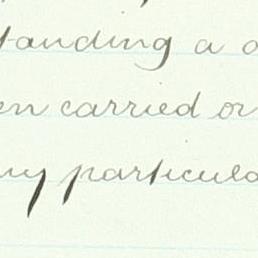 tanding a a
en carried or
ny particula